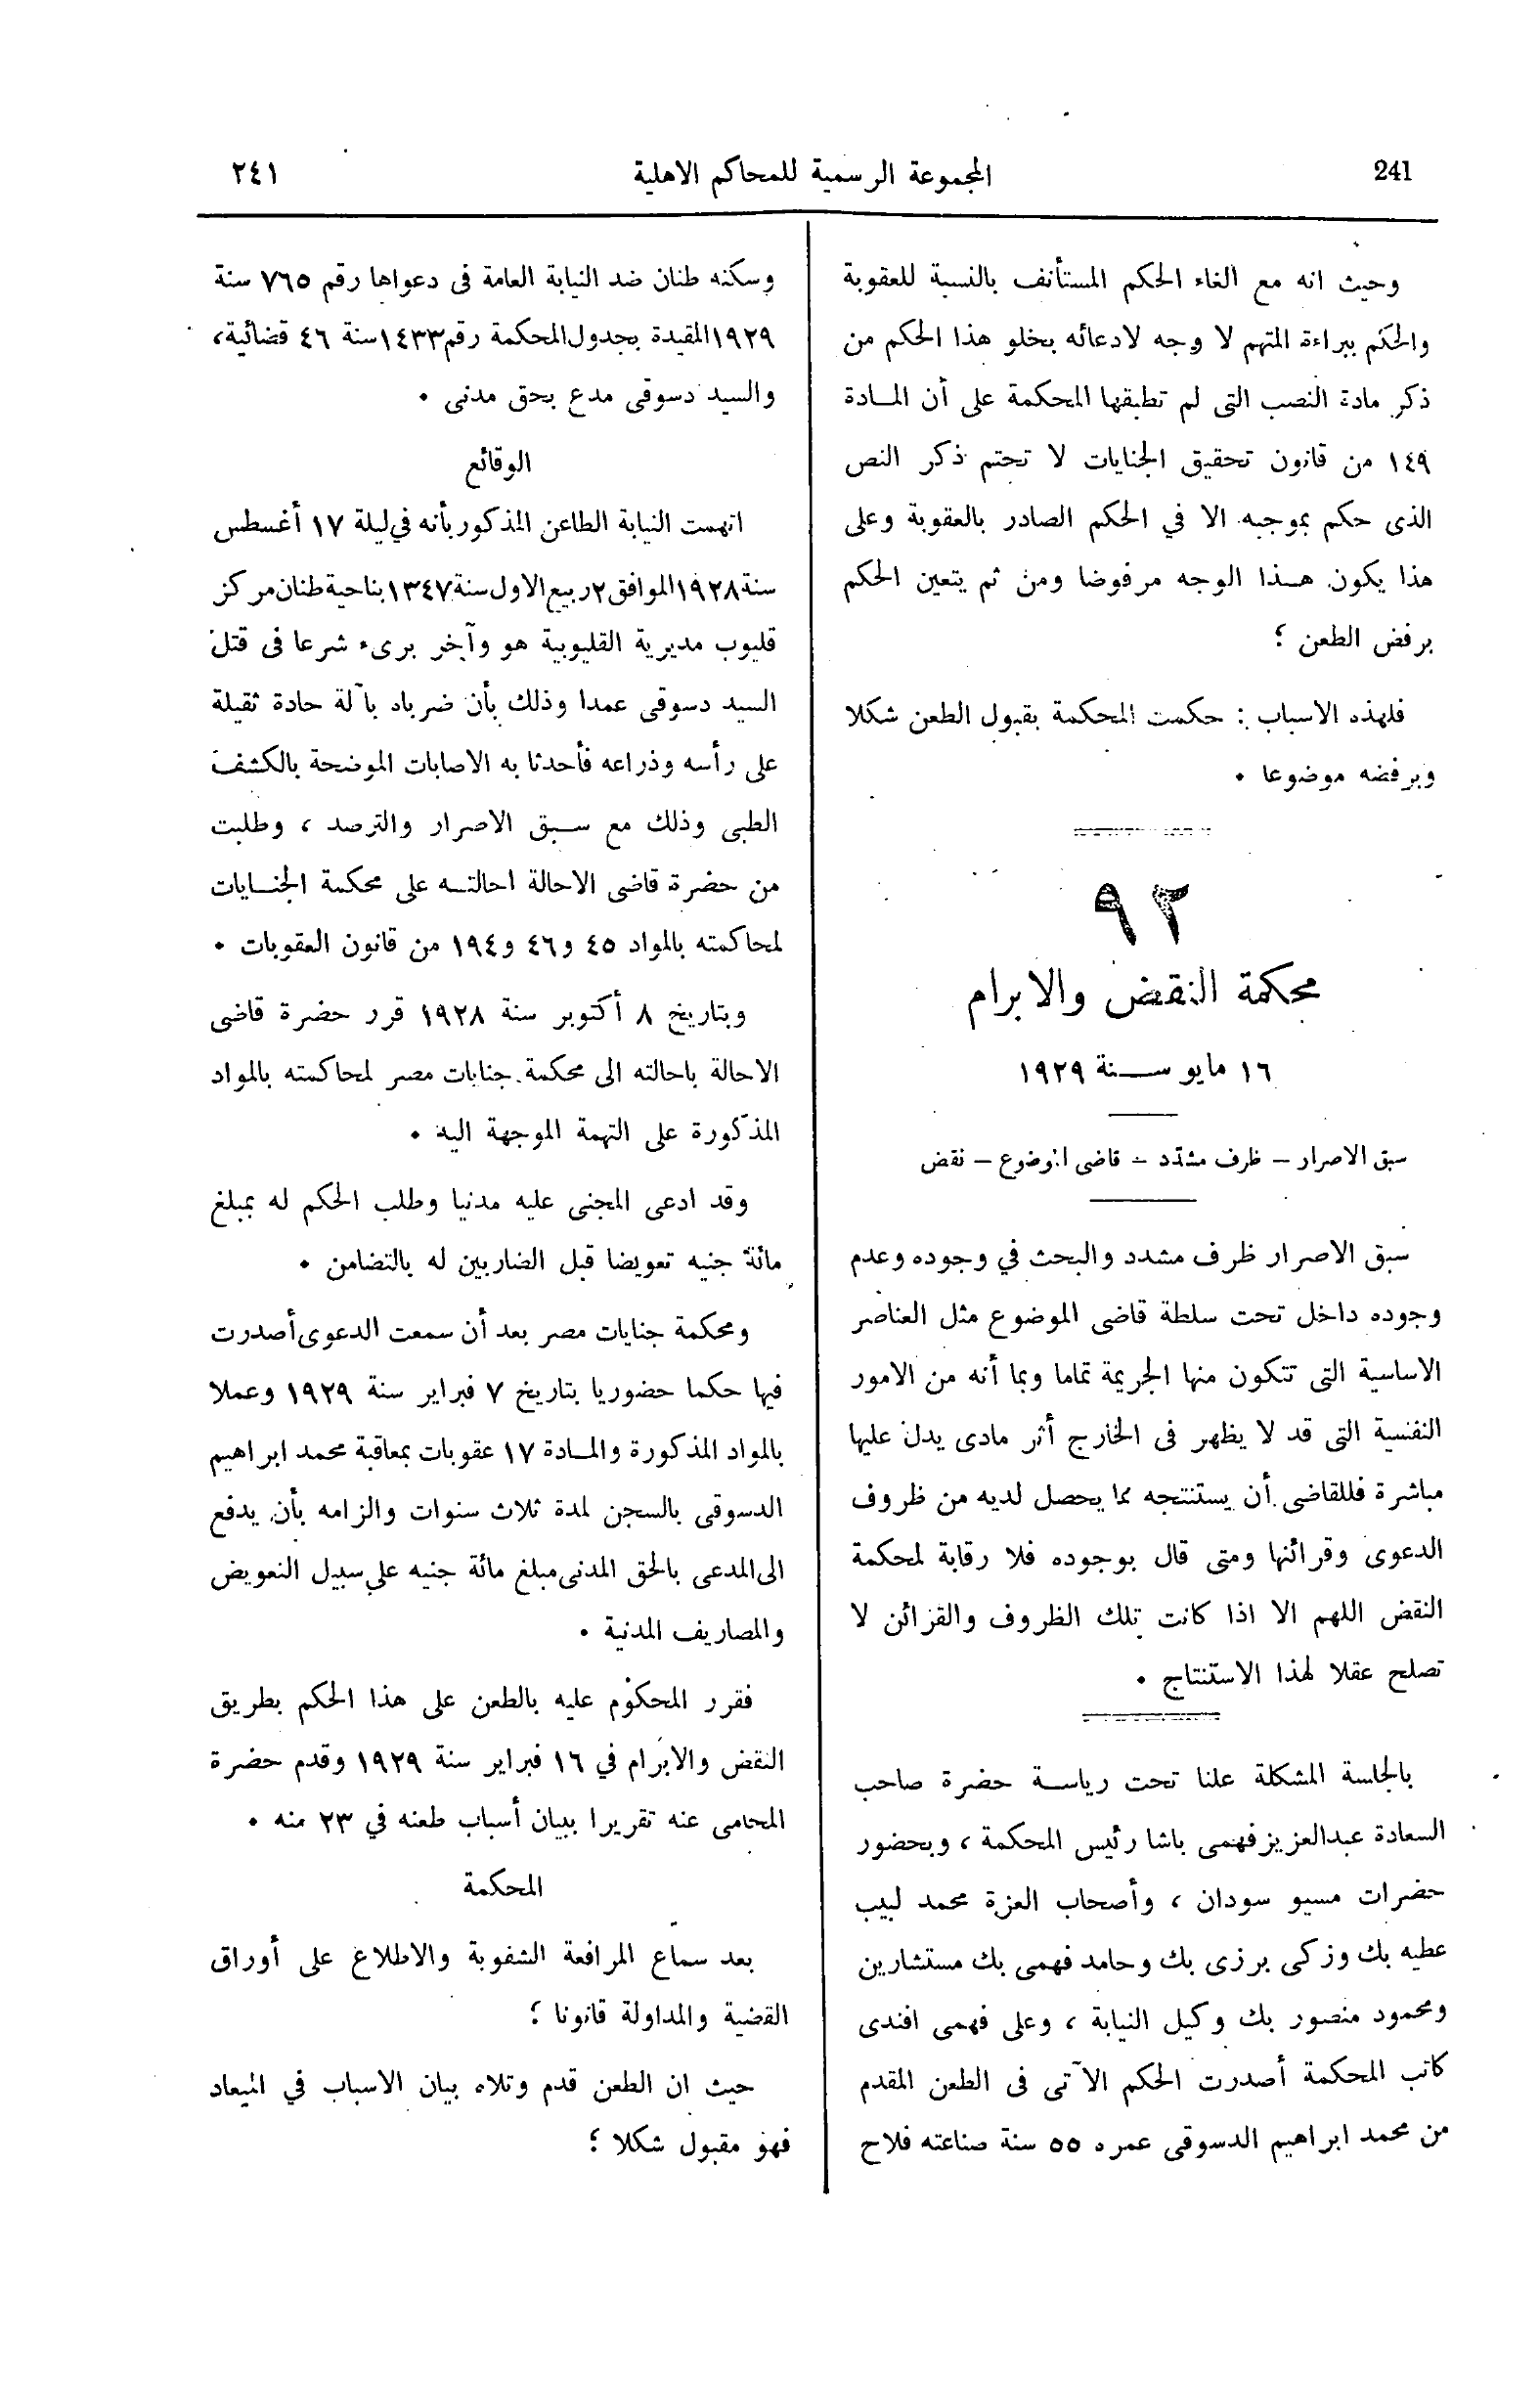 241
المجموعة الرسمية للمحاكم الاهلية
٢٤١
وحيث انه مع الغاء الحكم المستأنف بالنسبة للعقوبة
والحكم ببراءة المتهم لا وجه لادعائه بخلو هذا الحكم من
ذكر مادة النصب التى لم تطبقها المحكمة على أن المادة
١٤٩ من قانون تحقيق الجنايات لا تحتم ذكر النص
الذى حكم بموجبه الا في الحكم الصادر بالعقوبة وعلى
هذا يكون هذا الوجه مرفوضا ومن ثم يتعين الحكم
برفض الطعن ؛
فلهذه الاسباب : حكمت المحكمة بقبول الطعن شكلا
وبرفضه موضوعا .
٩٢
محكمة النقض والابرام
١٦ مايو سنة ١٩٢٩
سبق الاصرار – ظرف مشدد – قاضى الموضوع – نقض
سبق الاصرار ظرف مشدد والبحث في وجوده وعدم
وجوده داخل تحت سلطة قاضى الموضوع مثل العناصر
الاساسية التى تتكون منها الجريمة تماما وبما أنه من الامور
النفسية التى قد لا يظهر فى الخارج أثر مادى يدل عليها
مباشرة فللقاضى أن يستنتجه مما يحصل لديه من ظروف
الدعوى وقرائنها ومتى قال بوجوده فلا رقابة لمحكمة
النقض اللهم الا اذا كانت تلك الظروف والقرائن لا
تصلح عقلا لهذا الاستنتاج .
بالجلسة المشكلة علنا تحت رياسة حضرة صاحب
السعادة عبدالعزيز فهمى باشا رئيس المحكمة ، وبحضور
حضرات مسيو سودان ، وأصحاب العزة محمد لبيب
عطيه بك وزكى برزى بك وحامد فهمى بك مستشارين
ومحمود منصور بك وكيل النيابة ، وعلى فهمى افندى
كاتب المحكمة أصدرت الحكم الآتى فى الطعن المقدم
من محمد ابراهيم الدسوقى عمره ٥٥ سنة صناعته فلاح
وسكنه طنان ضد النيابة العامة فى دعواها رقم ٧٦٥ سنة
١٩٢٩ المقيدة بجدول المحكمة رقم ١٤٣٣ سنة ٤٦ قضائية،
والسيد دسوقى مدع بحق مدنى .
الوقائع
اتهمت النيابة الطاعن المذكور بأنه في ليلة ١٧ أغسطس
سنة ١٩٢٨ الموافق ٢ ربيع الاول سنة ١٣٤٧ بناحية طنان مركز
قليوب مديرية القليوبية هو وآخر برىء شرعا فى قتل
السيد دسوقى عمدا وذلك بأن ضرباه بآلة حادة ثقيلة
على رأسه وذراعه فأحدثا به الاصابات الموضحة بالكشف
الطبى وذلك مع سبق الاصرار والترصد ، وطلبت
من حضرة قاضى الاحالة احالته على محكمة الجنايات
لمحاكمته بالمواد ٤٥ و٤٦ و١٩٤ من قانون العقوبات .
وبتاريخ ٨ أكتوبر سنة ١٩٢٨ قرر حضرة قاضى
الاحالة باحالته الى محكمة جنايات مصر لمحاكمته بالمواد
المذكورة على التهمة الموجهة اليه .
وقد ادعى المجنى عليه مدنيا وطلب الحكم له بمبلغ
مائة جنيه تعويضا قبل الضاربين له بالتضامن .
ومحكمة جنايات مصر بعد أن سمعت الدعوى أصدرت
فيها حكما حضوريا بتاريخ ٧ فبراير سنة ١٩٢٩ وعملا
بالمواد المذكورة والمادة ١٧ عقوبات بمعاقبة محمد ابراهيم
الدسوقى بالسجن لمدة ثلاث سنوات والزامه بأن يدفع
الى المدعى بالحق المدنى مبلغ مائة جنيه على سبيل التعويض
والمصاريف المدنية .
فقرر المحكوم عليه بالطعن على هذا الحكم بطريق
النقض والابرام في ١٦ فبراير سنة ١٩٢٩ وقدم حضرة
المحامى عنه تقريرا ببيان أسباب طعنه في ٢٣ منه .
المحكمة
بعد سماع المرافعة الشفوية والاطلاع على أوراق
القضية والمداولة قانونا ؛
حيث ان الطعن قدم وتلاه بيان الاسباب في الميعاد
فهو مقبول شكلا ؛